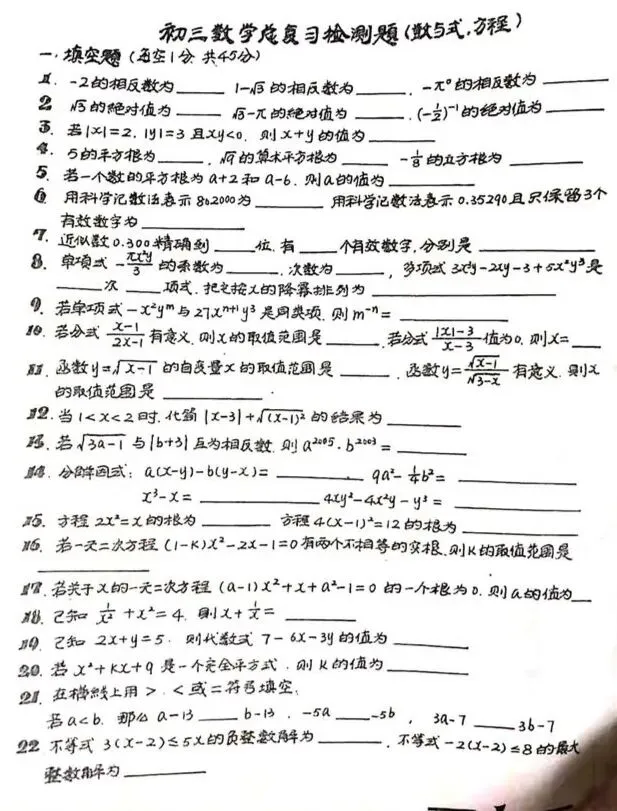 初三数学总复习检测题(数与式,方程)
一.填空题(每空1分 共45分)
1. -2的相反数为____ 1-√3的相反数为____. -π°的相反数为____
2. √3的绝对值为____ √3-π的绝对值为____. (-1/2)⁻¹的绝对值为____
3. 若|x|=2. |y|=3 且xy<0. 则x+y的值为____
4. 5的平方根为____. √9的算术平方根为____ -1/8的立方根为____
5. 若一个数的平方根为a+2和a-6. 则a的值为____
6. 用科学记数法表示802000为____ 用科学记数法表示0.35290且只保留3个
有效数字为____
7. 近似数0.300精确到____位.有____个有效数字,分别是____
8. 单项式 -πx²y/3 的系数为____. 次数为____, 多项式 3x²y-2xy-3+5x²y³是
____次____项式. 把它按x的降幂排列为____
9. 若单项式-x²yᵐ与27xⁿ⁺¹y³是同类项. 则m⁻ⁿ=____
10. 若分式 x-1/2x-1 有意义.则x的取值范围是____.若分式 |x|-3/x-3 值为0.则x=____
11. 函数y=√x-1 的自变量x的取值范围是____. 函数y=√x-1/√3-x 有意义. 则x
的取值范围是____.
12. 当1<x<2时.化简|x-3|+√(x-1)² 的结果为____
13. 若√3a-1 与|b+3|互为相反数.则a²⁰⁰⁵·b²⁰⁰³=____
14. 分解因式: a(x-y)-b(y-x)=____ 9a²-1/4b²=____
x³-x=____ 4xy²-4x²y-y³=____
15. 方程2x²=x的根为____ 方程4(x-1)²=12的根为____
16. 若一元二次方程(1-k)x²-2x-1=0有两个不相等的实根.则k的取值范围是
____
17. 若关于x的一元二次方程(a-1)x²+x+a²-1=0的一个根为0.则a的值为__
18. 已知 1/x²+x²=4. 则x+1/x=____
19. 已知 2x+y=5. 则代数式 7-6x-3y的值为____
20. 若 x²+kx+9是一个完全平方式.则k的值为____
21. 在横线上用>.<或=符号填空:
若a<b. 那么a-13____b-13. -5a____-5b, 3a-7____3b-7
22 不等式3(x-2)≤5x的负整数解为____, 不等式-2(x-2)≤8的最大
整数解为____